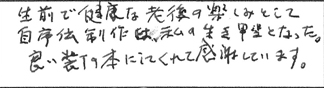 生前で健康な老後の楽しみとして
自序伝制作は、私の生き甲斐となった。
良い装丁の本にしてくれて感謝しています。